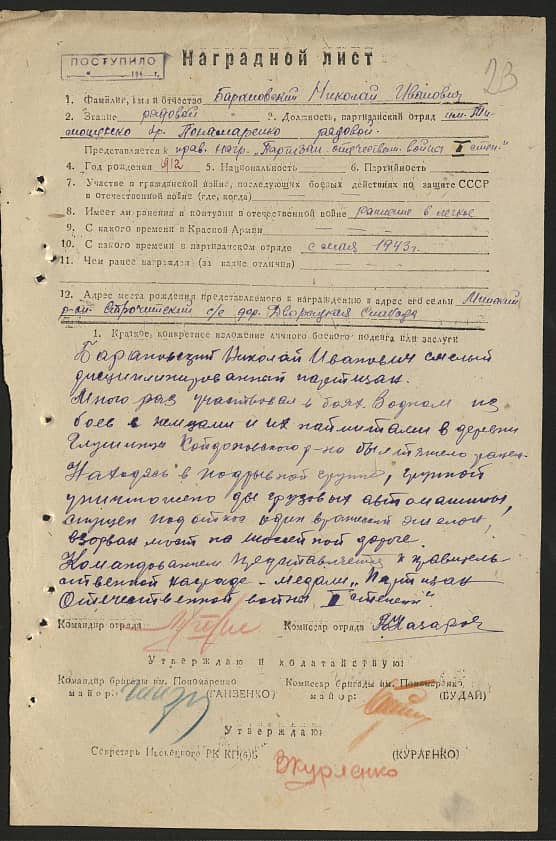 ПОСТУПИЛО
194 г.
23
Наградной лист
1. Фамилия, имя и отчество Барановский Николай Иванович
2. Звание рядовой 2. Должность, партизанский отряд им. Ти-
мошенко бр. Пономаренко рядовой.
Представляется к прав. нагр. „Партизан отечествен. войны II степ."
4. Год рождения 1912 5. Национальность 6. Партийность
7. Участие в гражданской войне, последующих боевых действиях по защите СССР
и отечественной войне (где, когда)
8. Имеет ли ранения и контузии в отечественной войне ранение в легкое
9. С какого времени в Красной Армии
10. С какого времени в партизанском отряде с мая 1943 г.
11. Чем ранее награжден (за какие отличия)
12. Адрес места рождения представляемого к награждению и адрес его семьи Минский
р-он с/с дер. Слабода
1. Краткое, конкретное изложение личного боевого подвига или заслуги
Барановский Николай Иванович смелый
дисциплинированный партизан.
Много раз участвовал в боях. В одном из
боев с немцами и их наймитами в деревни
Койдановского р-на был тяжело ранен.
Находясь в подрывной группе, группой
уничтожено два грузовых автомашины,
спущен под откос один вражеский эшелон,
взорван мост на шоссейной дороге.
Командованием представляется к правитель-
ственной награде - медали „Партизан
Отечественной войны II степени".
Командир отряда Комиссар отряда Назаров
Утверждаю и ходатайствую:
Командир бригады им. Пономаренко Комиссар бригады им. Пономаренко
майор: (ГАНЗЕНКО) майор: (БУДАЙ)
Утверждаю:
Секретарь РК КП(б)Б (КУРЛЕНКО)
Журленко